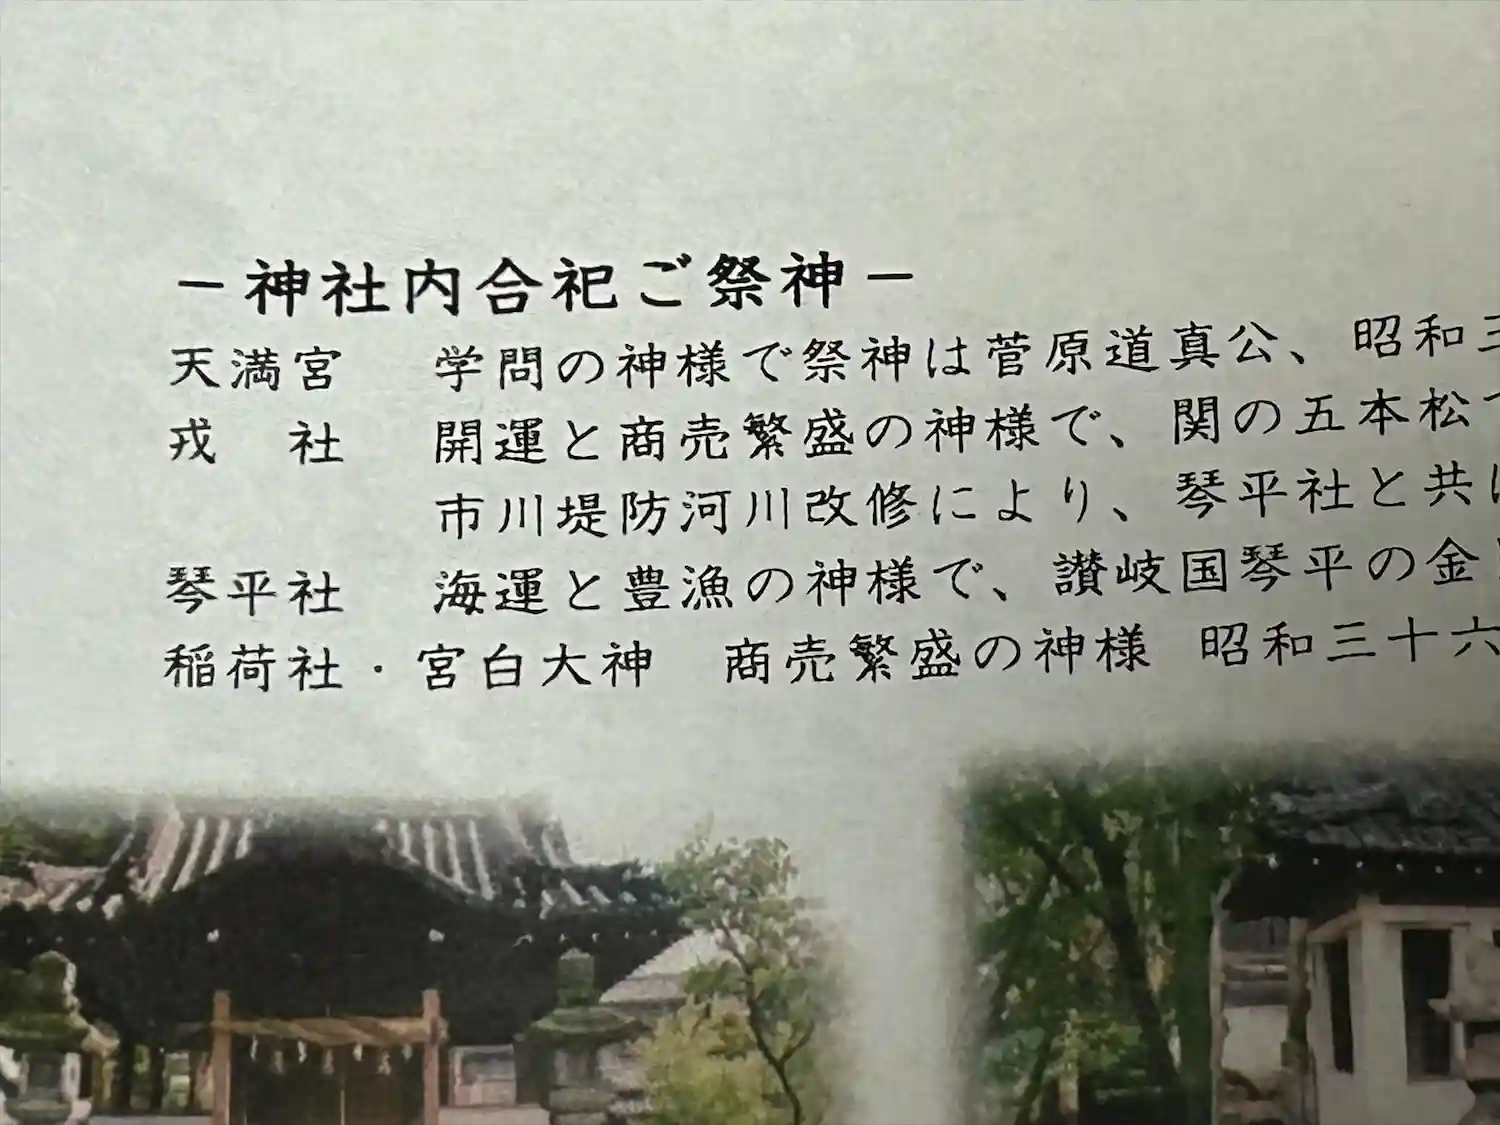 －神社内合祀ご祭神－
天満宮　学問の神様で祭神は菅原道真公、昭和三
戎　社　開運と商売繁盛の神様で、関の五本松で
市川堤防河川改修により、琴平社と共に
琴平社　海運と豊漁の神様で、讃岐国琴平の金
稲荷社・宮白大神　商売繁盛の神様　昭和三十六